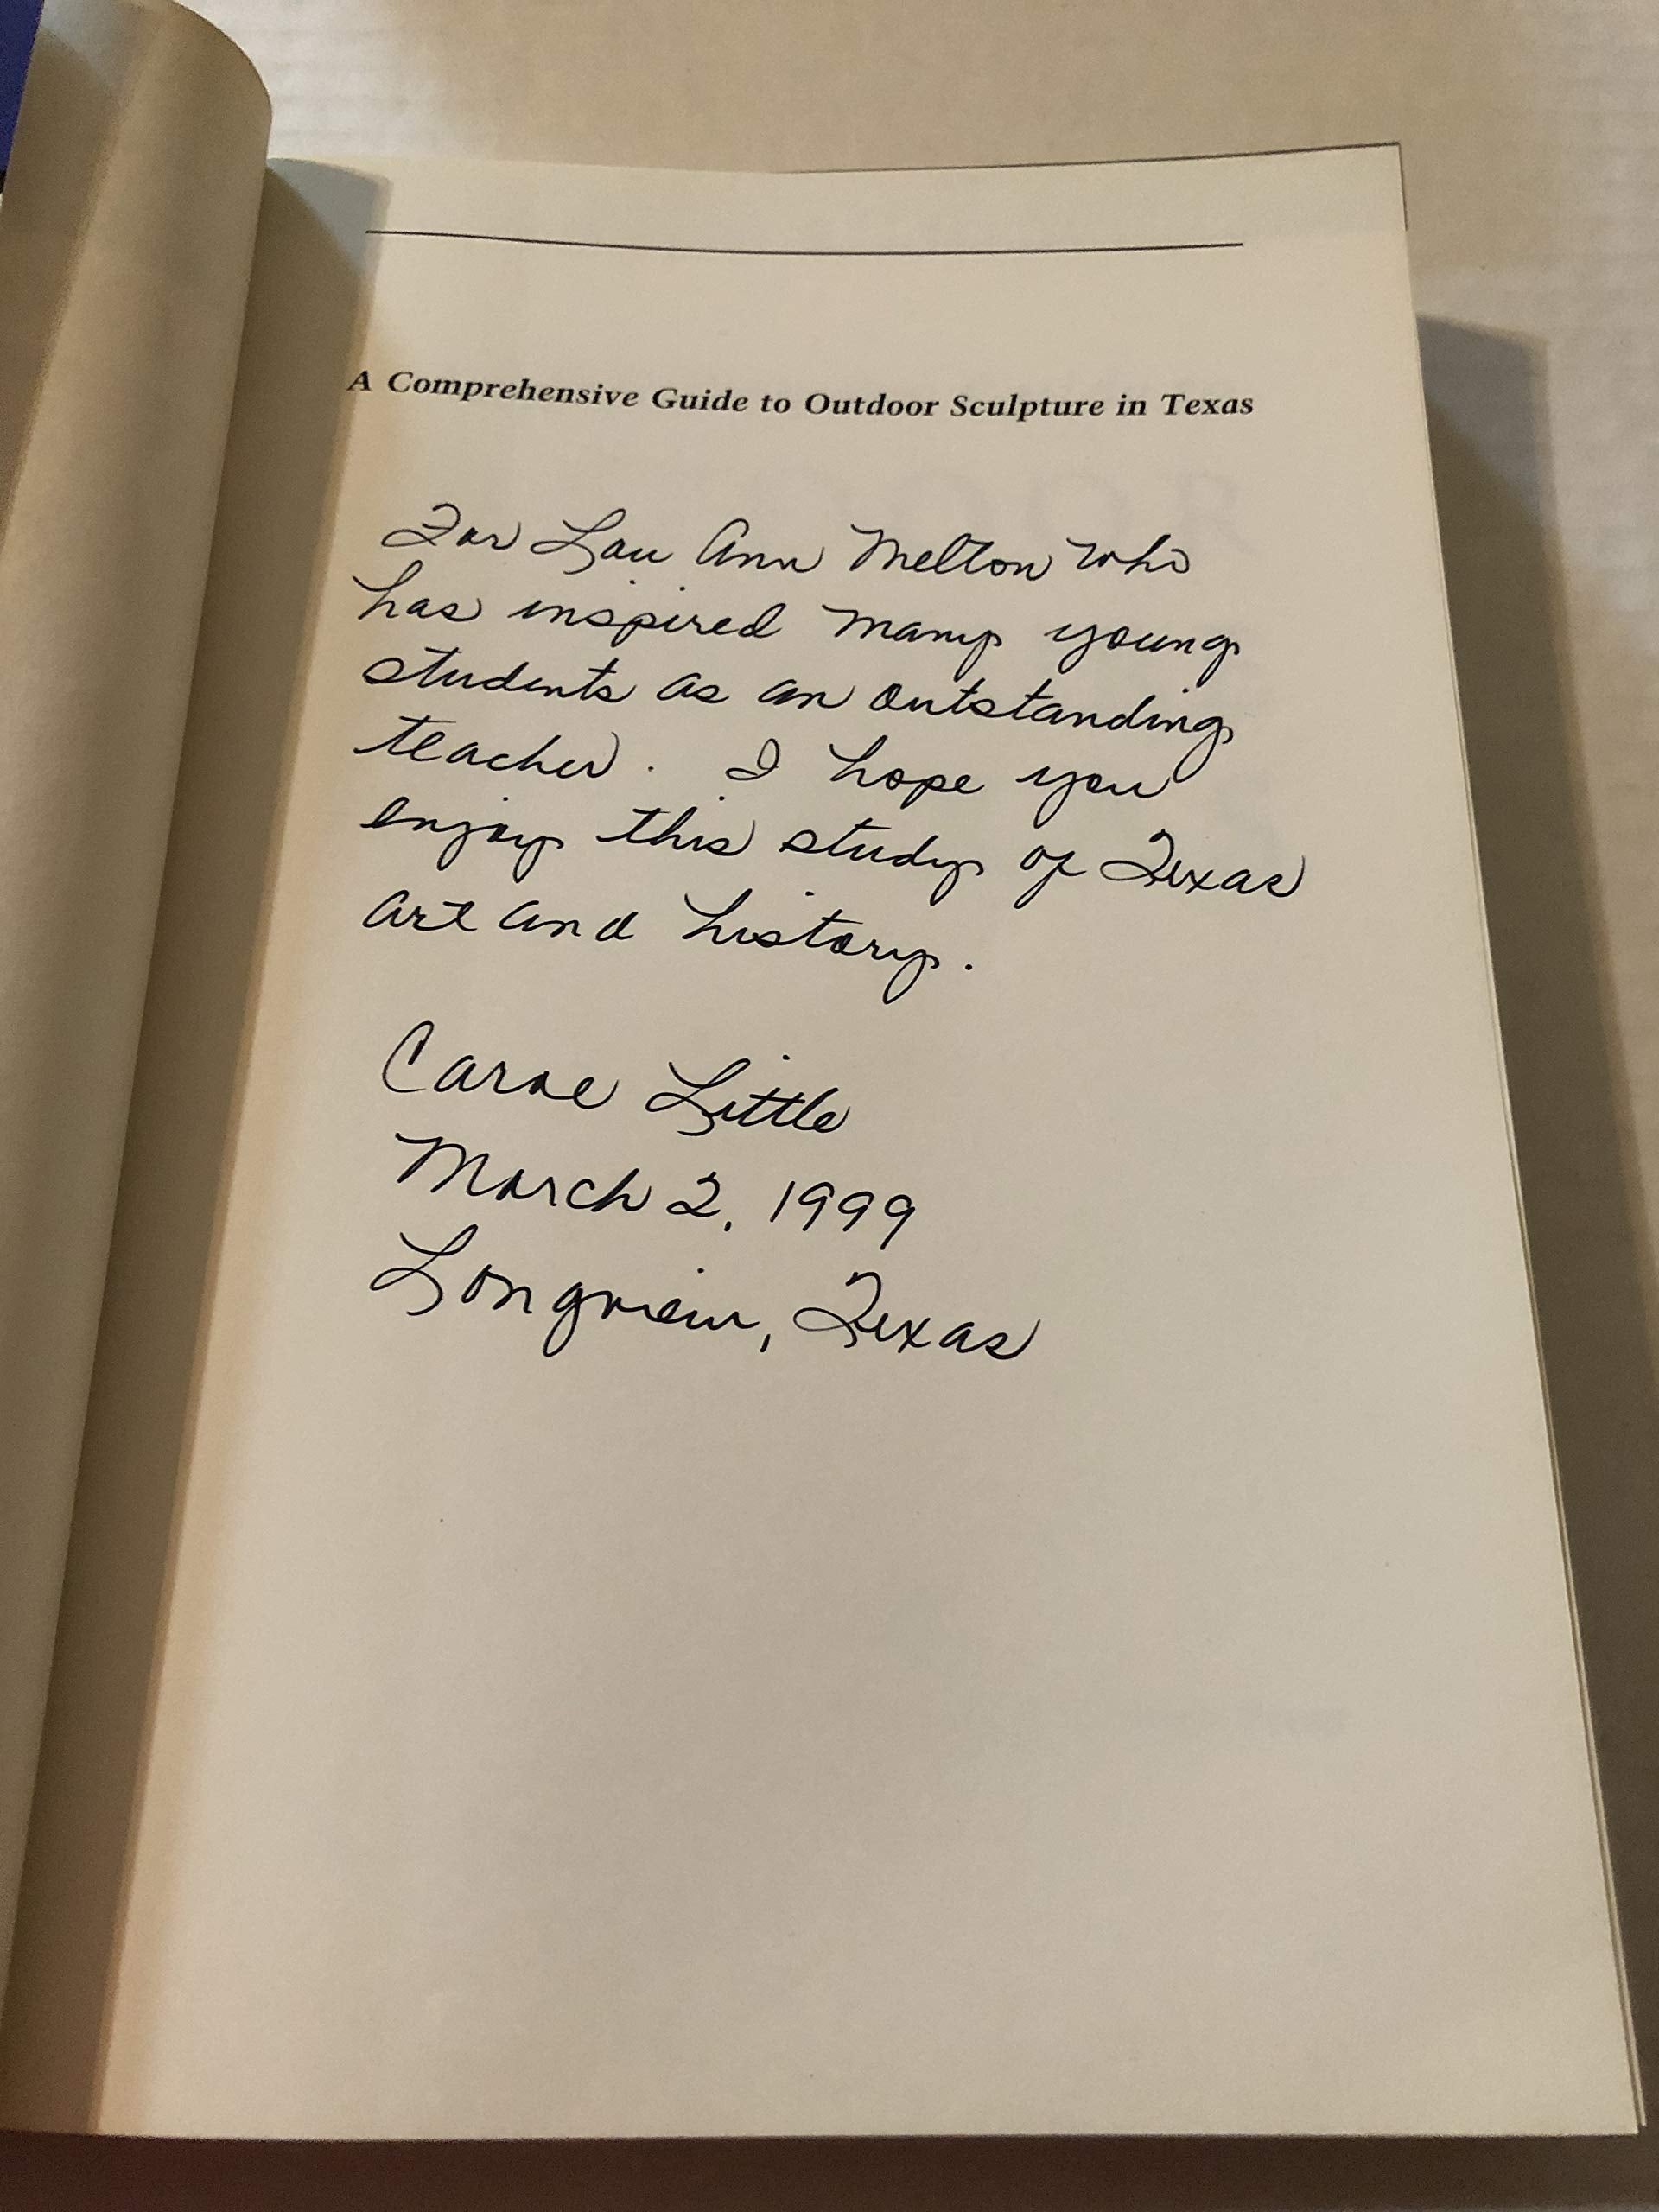 A Comprehensive Guide to Outdoor Sculpture in Texas
For Lou Ann Melton who
has inspired many young
students as an outstanding
teacher. I hope you
enjoy this study of Texas
art and history.
Carol Little
March 2, 1999
Longview, Texas